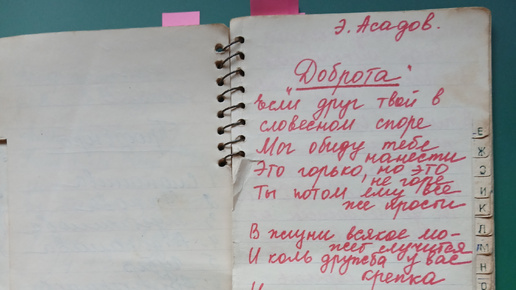 Э. Асадов.
"Доброта"
Если друг твой в
словесном споре
Мог обиду тебе
нанести
Это горько, но это
не горе
Ты потом ему все
же прости
В жизни всякое мо-
жет случится
И коль дружба у вас
крепка
Е
Ж
З
И
К
Л
М
Н
О